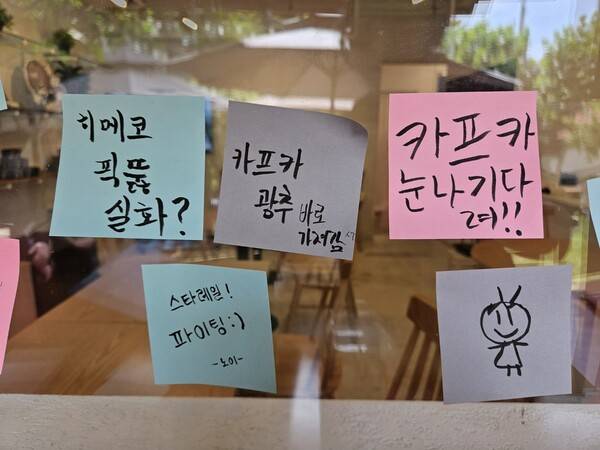 히메코
픽뚫
실화?
카프카
광추 바로
가져감
카프카
눈나 기다
려!!
스타레일!
파이팅:)
-노이-